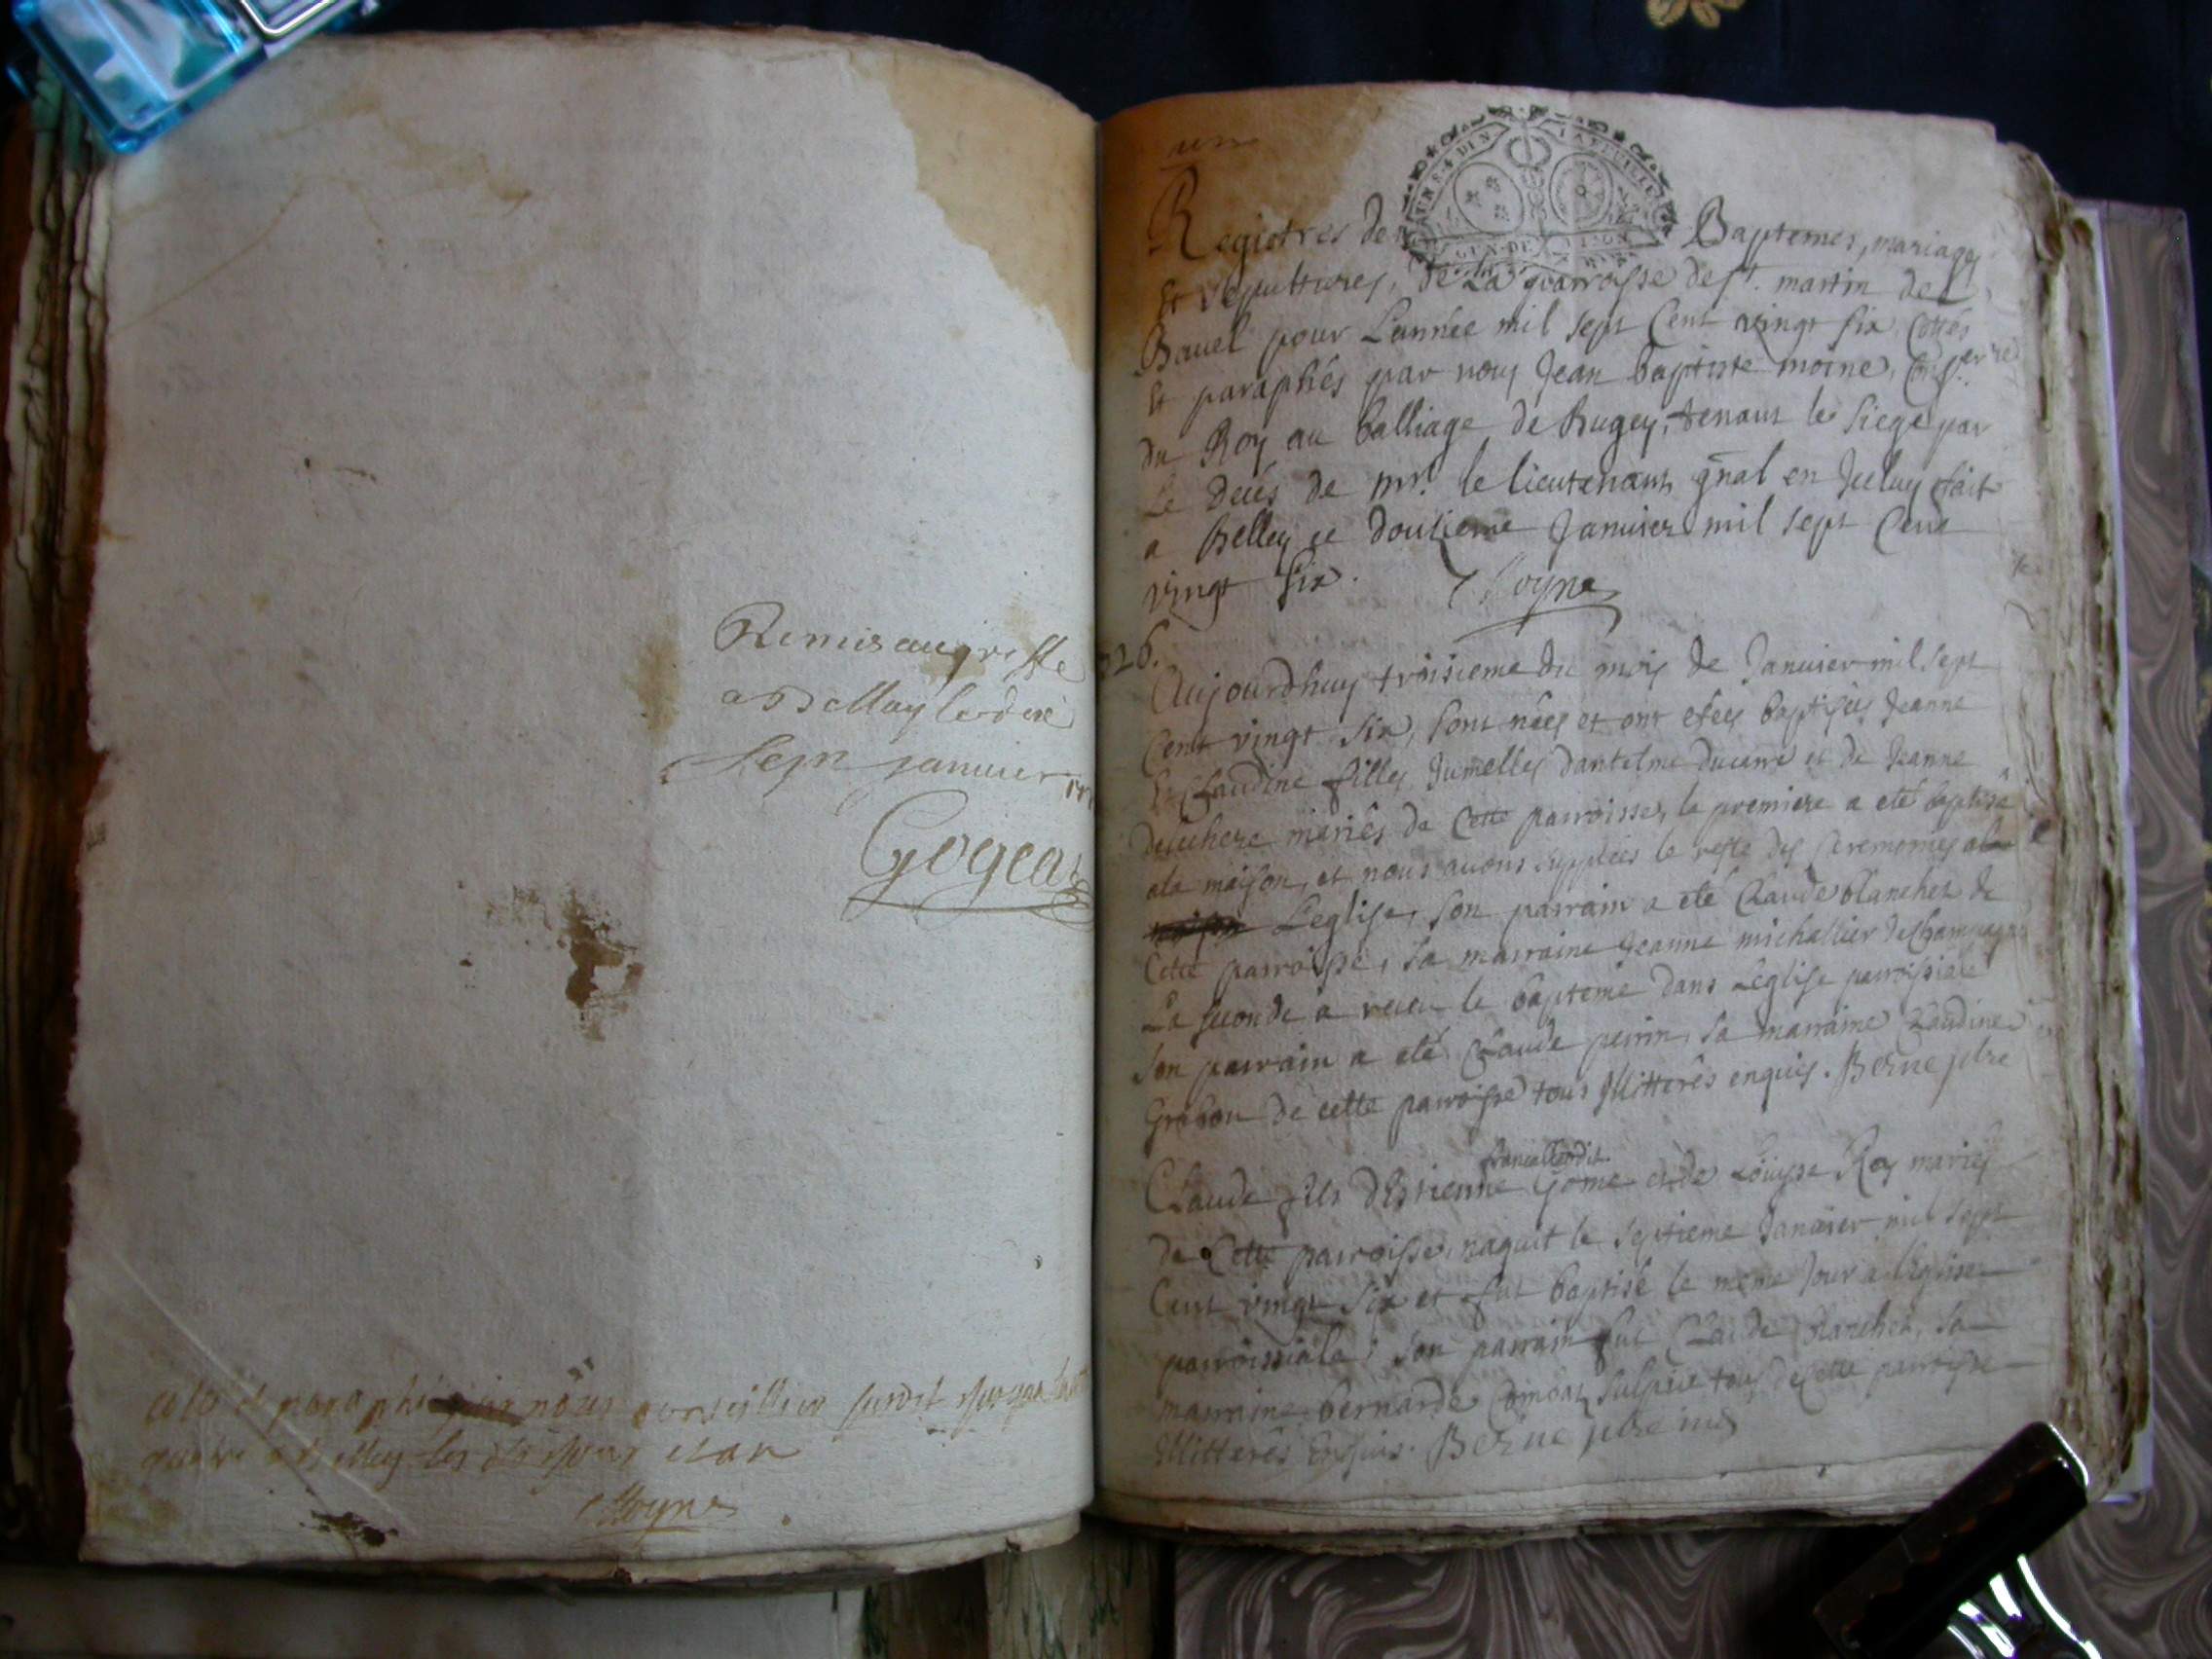 Remis au greffe
a Belley le dix
sept janvier
Gogeat
cotté et paraphé par nous conseiller
a Belley les
Moyne
un
UN S. 4 DEN LA FEUILLE
GEN. DE DIJON
Registres de Baptemes, mariages
Et sepultures, de La parroisse de st. martin de
Bavel pour L'année mil sept Cent vingt six, Cottés
Et paraphés par nous Jean baptiste moine, Consr.
du Roy au balliage de Bugey, tenant le siege par
Le decés de mr. le lieutenant gnal en Iceluy fait
a Belley ce douzieme Januier mil sept Cent
vingt six. Moyne
26.
Aujourdhuy troisieme du mois de Januier mil sept
Cent vingt six, sont nées et ont etées baptisées Jeanne
Et Claudine filles Jumelles dantelme ducarre et de Jeanne
mariés de Cette parroisse, la premiere a eté baptisée
a la maison, et nous avons suppléés le reste des Ceremonies a
L'eglise, son parrain a eté Claude blanchet de
Cette parroisse, sa marraine Jeanne michallier de Champagne
La seconde a receu le bapteme dans L'eglise parroissiale
son parrain a eté Claude perrin, sa marraine Claudine
de cette parroisse tous Illitterés enquis. Berne ptre
Claude fils d'Estienne Gome et de Loüyse Roy mariés
de Cette parroisse, naquit le septieme Januier mil sept
Cent vingt six et fut baptisé le meme Jour a L'eglise
parroissiale; son parrain fut Claude blanchet, sa
marraine bernarde tous de Cette parroisse
Illitterés Enquis. Berne ptre